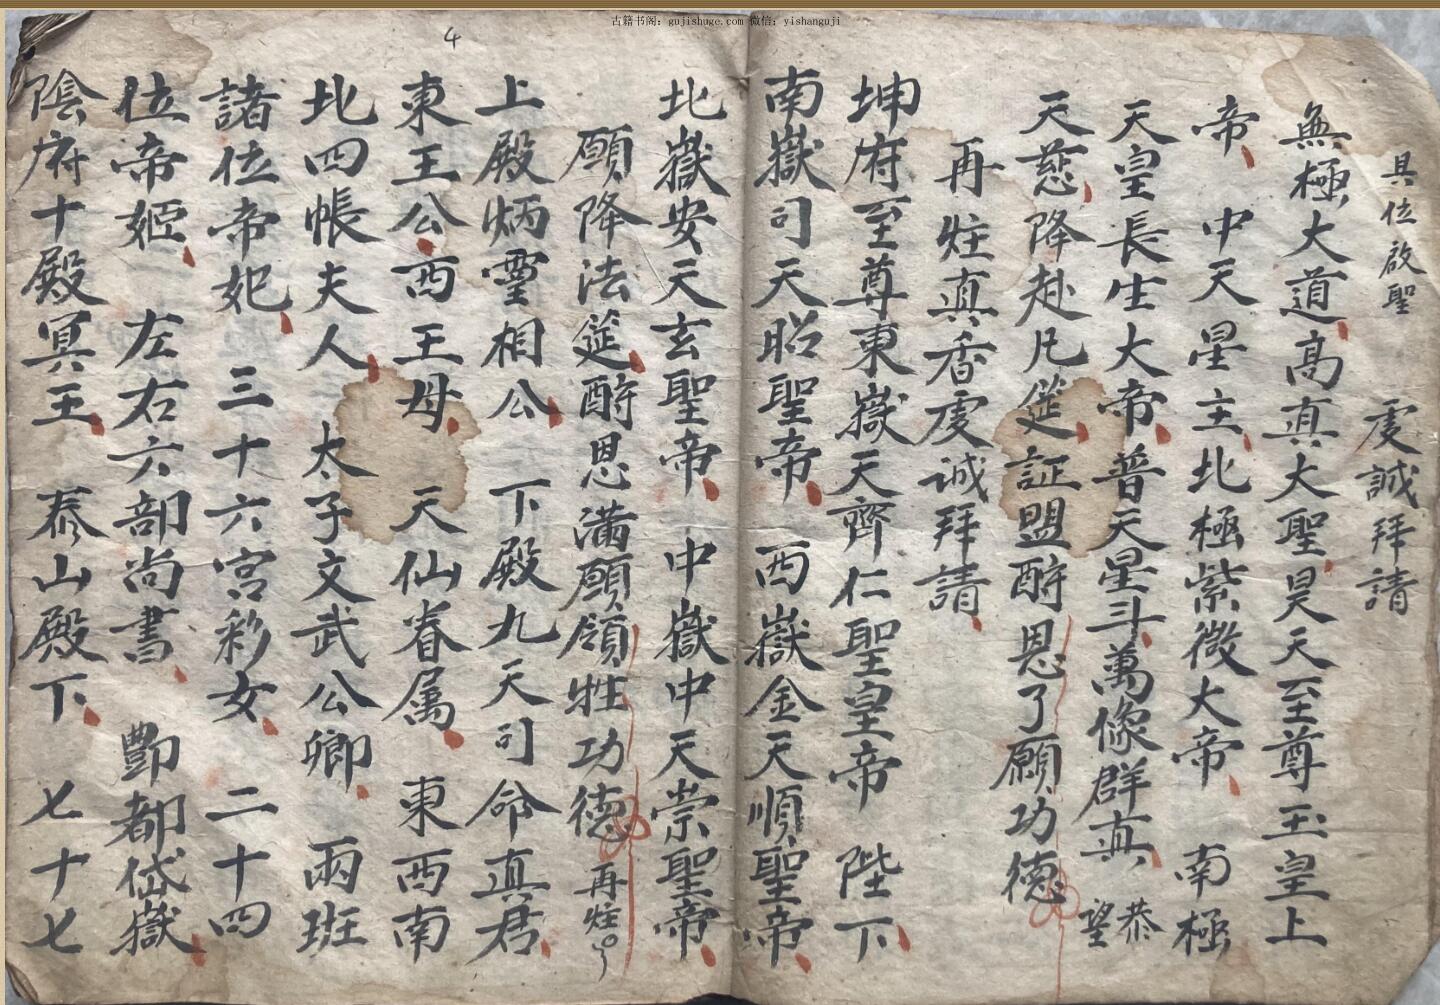 古籍书阁：gujishuge.com 微信：yishanguji
4
具位啟聖 虔誠拜請
無極大道高真大聖昊天至尊玉皇上
帝 中天星主北極紫微大帝 南極
天皇長生大帝普天星斗萬像群真 恭望
天慈降赴凡筵証盟酧恩了願功德
再炷真香虔誠拜請
坤府至尊東嶽天齊仁聖皇帝 陛下
南嶽司天昭聖帝 西嶽金天順聖帝
北嶽安天玄聖帝 中嶽中天崇聖帝
願降法筵酧恩滿願領牲功德 再炷
上殿炳靈相公 下殿九天司命真君
東王公西王母 天仙眷属 東西南
北四帳夫人 太子文武公卿 兩班
諸位帝妃 三十六宮彩女 二十四
位帝姬 左右六部尚書 酆都岱嶽
陰府十殿冥王 泰山殿下 七十七